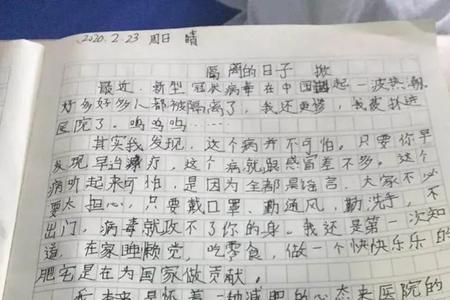 2020.2.23 周日 晴
隔离的日子
最近,新型冠状病毒在中国掀起一波热潮,
好多好多人都被隔离了,我还更惨,我被抓进
医院了。呜呜呜……
其实我发现,这个病并不可怕。只要你早
发现早治疗,这个病就跟感冒差不多。这个
病听起来可怕,是因为全都是谣言,大家不必
要太担心,只要戴口罩、勤通风,勤洗手,不
出门,病毒就攻不了你的身。我还是第一次知
道,在家睡懒觉,吃零食,做一个快快乐乐的
肥宅是在为国家做贡献。
我本来是怀着一种减肥的心态来医院的